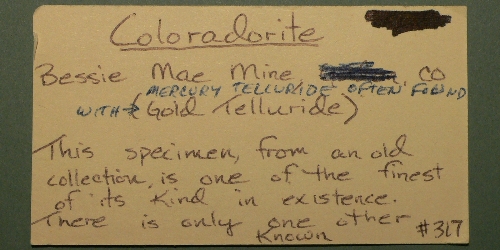 Coloradorite
Bessie Mae Mine, CO
MERCURY TELLURIDE OFTEN FOUND
WITH → (Gold Telluride)
This specimen, from an old
collection, is one of the finest
of its kind in existence.
There is only one other
Known
#317